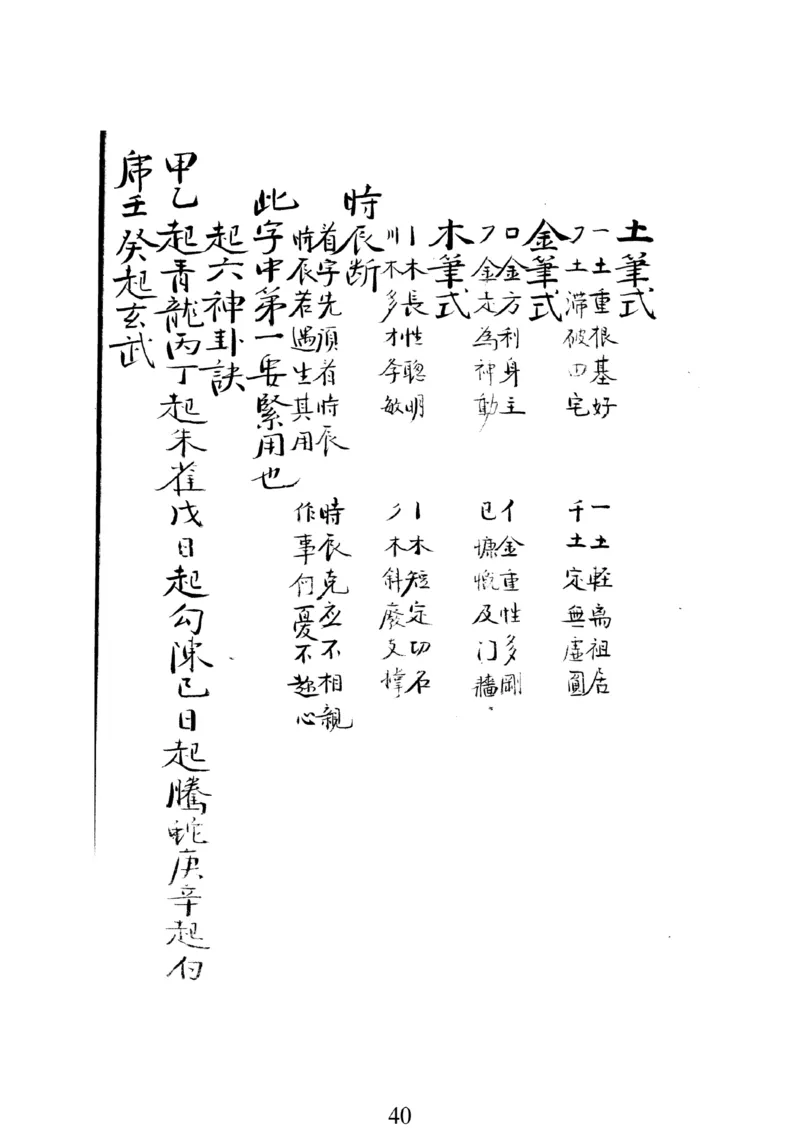 土筆式
一土重根基好 一土輕离祖居
フ土滞破田宅 千土定無虛圓
金筆式
口金方利身主 亻金重性多剛
フ金走為神動 已慷慨及门牆
木筆式
丨木長性聰明 丨木短定切石
川木多才孝敏 木斜廢文
時辰断
看字先須看時辰 時辰克应不相親
時辰若遇生其用 作事何憂不趂心
此字中第一要緊用也
起六神卦訣
甲乙起青龍丙丁起朱雀戊日起勾陳己日起騰蛇庚辛起白
虎壬癸起玄武
40